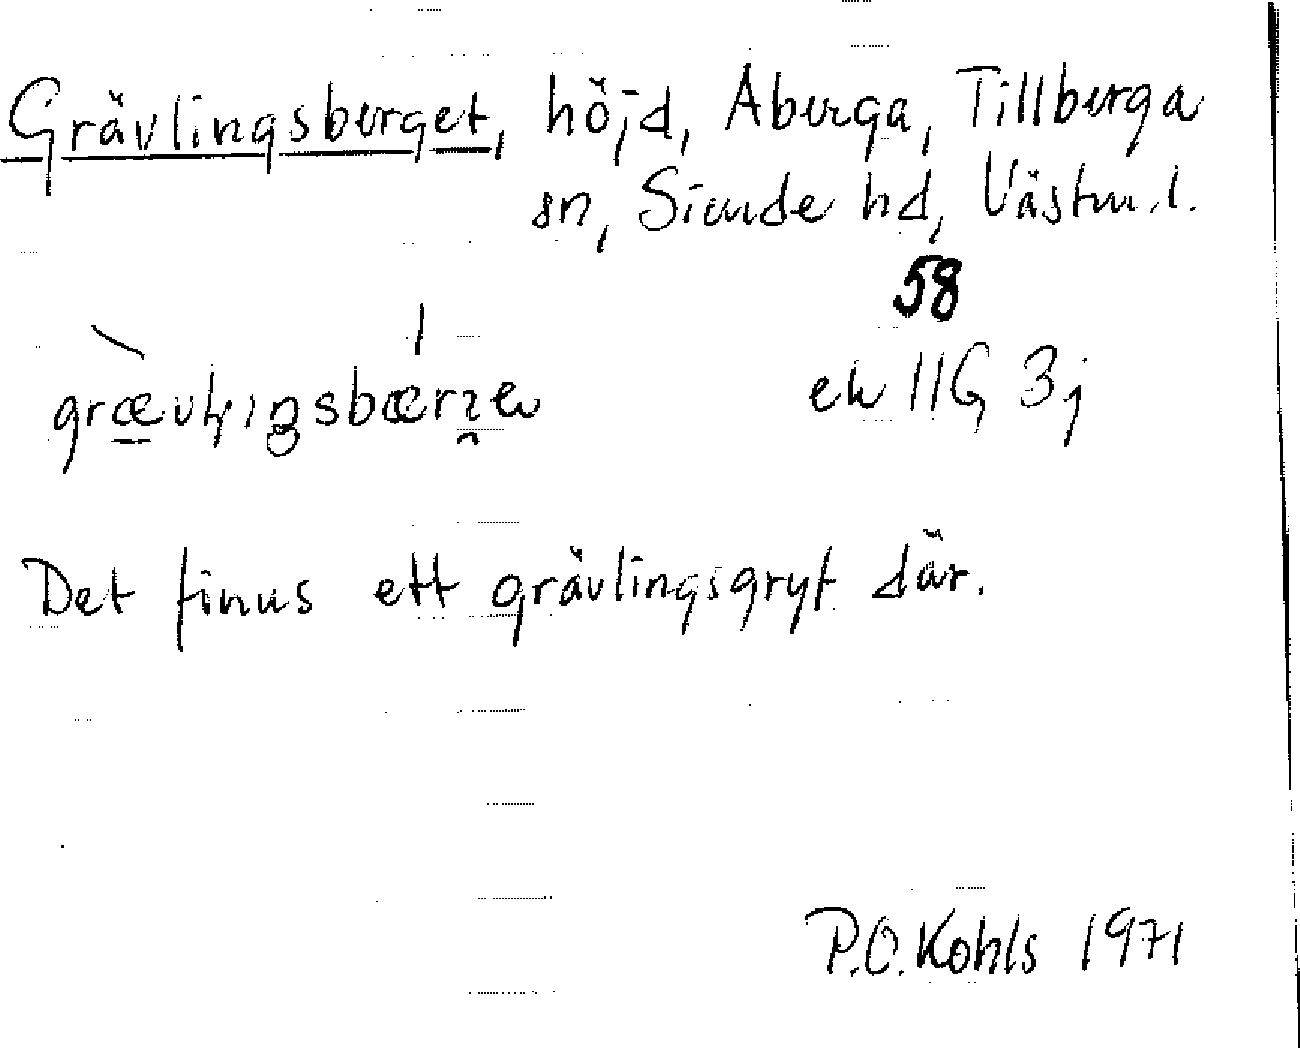 Grävlingsberget, höjd, Aberga, Tillberga
sn, Siende hd, Västm. l.
58
ek 11G 3j
Det finns ett grävlingsgryt där.
P.O. Kohls 1971